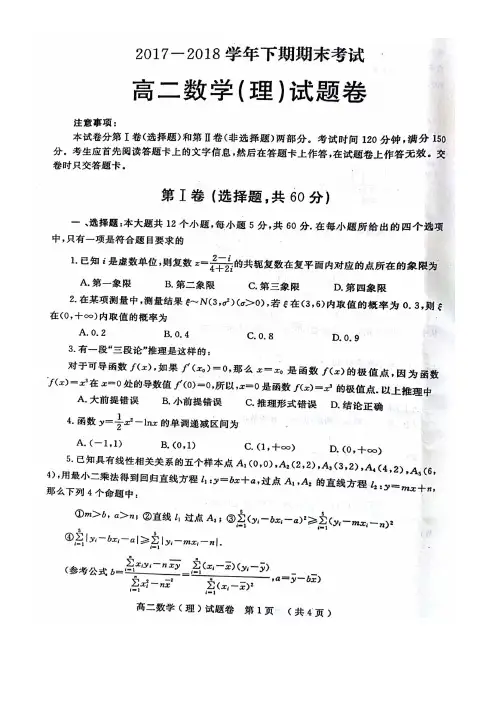 2017－2018 学年下期期末考试
高二数学(理)试题卷
注意事项：
本试卷分第Ⅰ卷(选择题)和第Ⅱ卷(非选择题)两部分。考试时间 120 分钟,满分 150
分。考生应首先阅读答题卡上的文字信息,然后在答题卡上作答,在试题卷上作答无效。交
卷时只交答题卡。
第Ⅰ卷 (选择题,共 60 分)
一 、选择题:本大题共 12 个小题,每小题 5 分,共 60 分.在每小题所给出的四个选项
中,只有一项是符合题目要求的
1.已知 i 是虚数单位,则复数 z=\frac{2-i}{4+2i}的共轭复数在复平面内对应的点所在的象限为
A.第一象限 B.第二象限 C.第三象限 D.第四象限
2.在某项测量中,测量结果 ξ~N(3,σ²)(σ>0),若 ξ 在(3,6)内取值的概率为 0.3,则 ξ
在(0,+∞)内取值的概率为
A.0.2 B.0.4 C.0.8 D.0.9
3.有一段“三段论”推理是这样的:
对于可导函数 f(x),如果 f′(x₀)=0,那么 x=x₀ 是函数 f(x)的极值点,因为函数
f(x)=x³在 x=0 处的导数值 f′(0)=0,所以,x=0 是函数 f(x)=x³ 的极值点.以上推理中
A.大前提错误 B.小前提错误 C.推理形式错误 D.结论正确
4.函数 y=\frac{1}{2}x²-lnx 的单调递减区间为
A.(-1,1) B.(0,1) C.(1,+∞) D.(0,+∞)
5.已知具有线性相关关系的五个样本点 A₁(0,0),A₂(2,2),A₃(3,2),A₄(4,2),A₅(6,
4),用最小二乘法得到回归直线方程 l₁:y=bx+a,过点 A₁,A₂ 的直线方程 l₂:y=mx+n,
那么下列 4 个命题中:
①m>b, a>n; ②直线 l₁ 过点 A₃; ③\sum_{i=1}^{5}(y_i-bx_i-a)²≥\sum_{i=1}^{5}(y_i-mx_i-n)²
④\sum_{i=1}^{5}|y_i-bx_i-a|≥\sum_{i=1}^{5}|y_i-mx_i-n|.
(参考公式 b=\frac{\sum_{i=1}^{n}x_iy_i-n\overline{xy}}{\sum_{i=1}^{n}x_i^2-n\overline{x}^2}=\frac{\sum_{i=1}^{n}(x_i-\overline{x})(y_i-\overline{y})}{\sum_{i=1}^{n}(x_i-\overline{x})²},a=\overline{y}-b\overline{x})
高二数学(理)试题卷 第 1 页 (共 4 页)